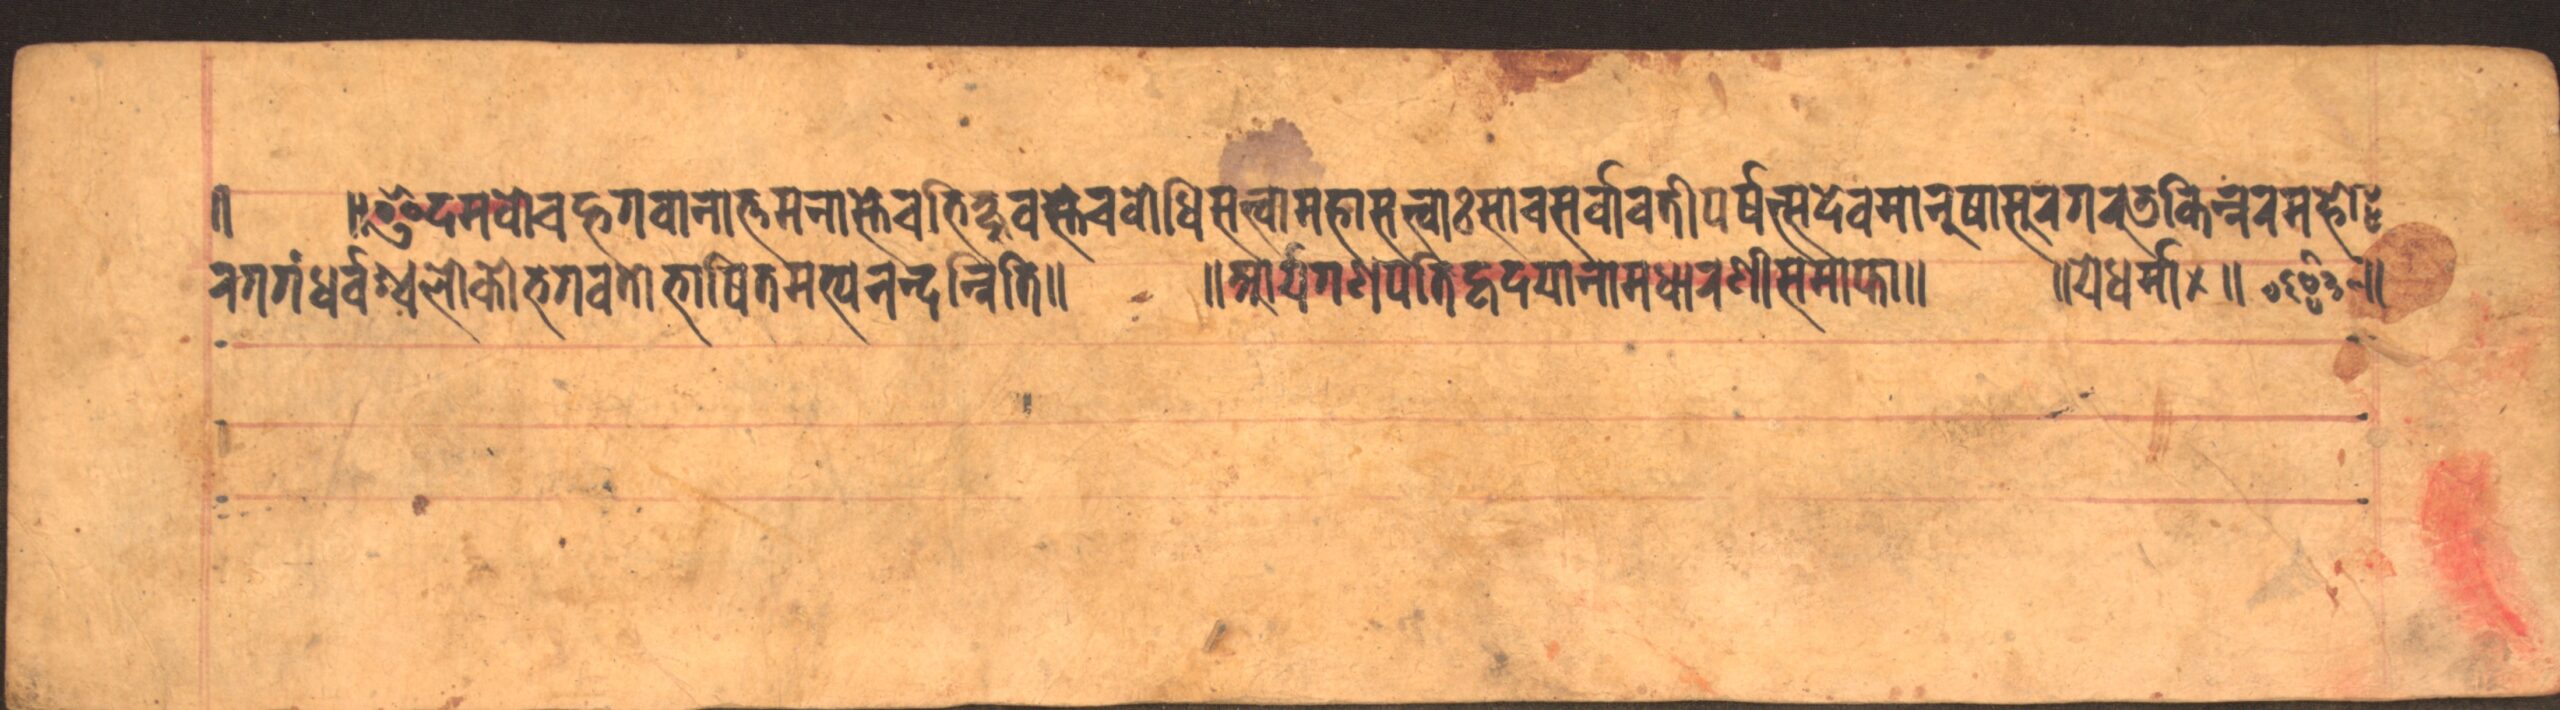 ॥ ॥इदमवोचद्भगवानात्तमनास्तेचभिक्षुवस्तेचवोधिसत्त्वामहासत्त्वाःसाचसर्वावतीपर्षत्सदेवमानुषासुरगरुडकिन्नरमहो
रगगंधर्वश्चलोकोभगवतोभाषितमभ्यनन्दन्निति॥ ॥आर्यगणपतिहृदयानामधारणीसमाप्ता॥ ॥येधर्मा४॥ ॥